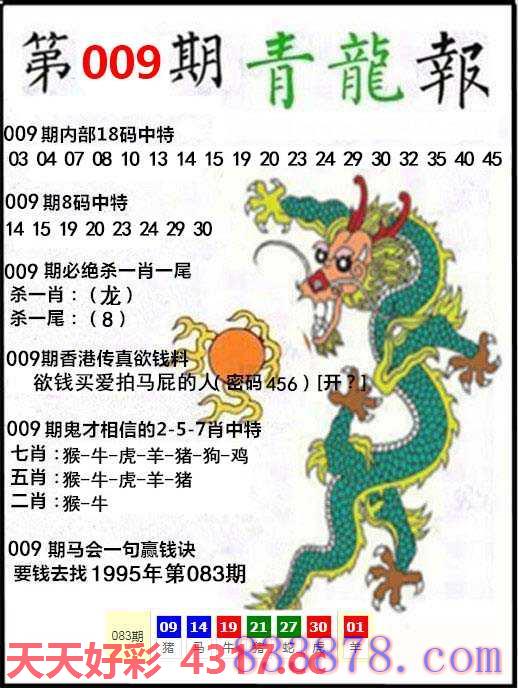 第009期 青龍報
009期内部18码中特
03 04 07 08 10 13 14 15 19 20 23 24 29 30 32 35 40 45
009期8码中特
14 15 19 20 23 24 29 30
009 期必绝杀一肖一尾
杀一肖：（龙）
杀一尾：（8）
009期香港传真欲钱料
欲钱买爱拍马屁的人（密码456）[开？]
009期鬼才相信的2-5-7肖中特
七肖：猴-牛-虎-羊-猪-狗-鸡
五肖：猴-牛-虎-羊-猪
二肖：猴-牛
009 期马会一句赢钱诀
要钱去找1995年第083期
083期 09 14 19 21 27 30 01
猪 马 牛 猪 蛇 虎 羊
天天好彩 4317.cc
833878.com